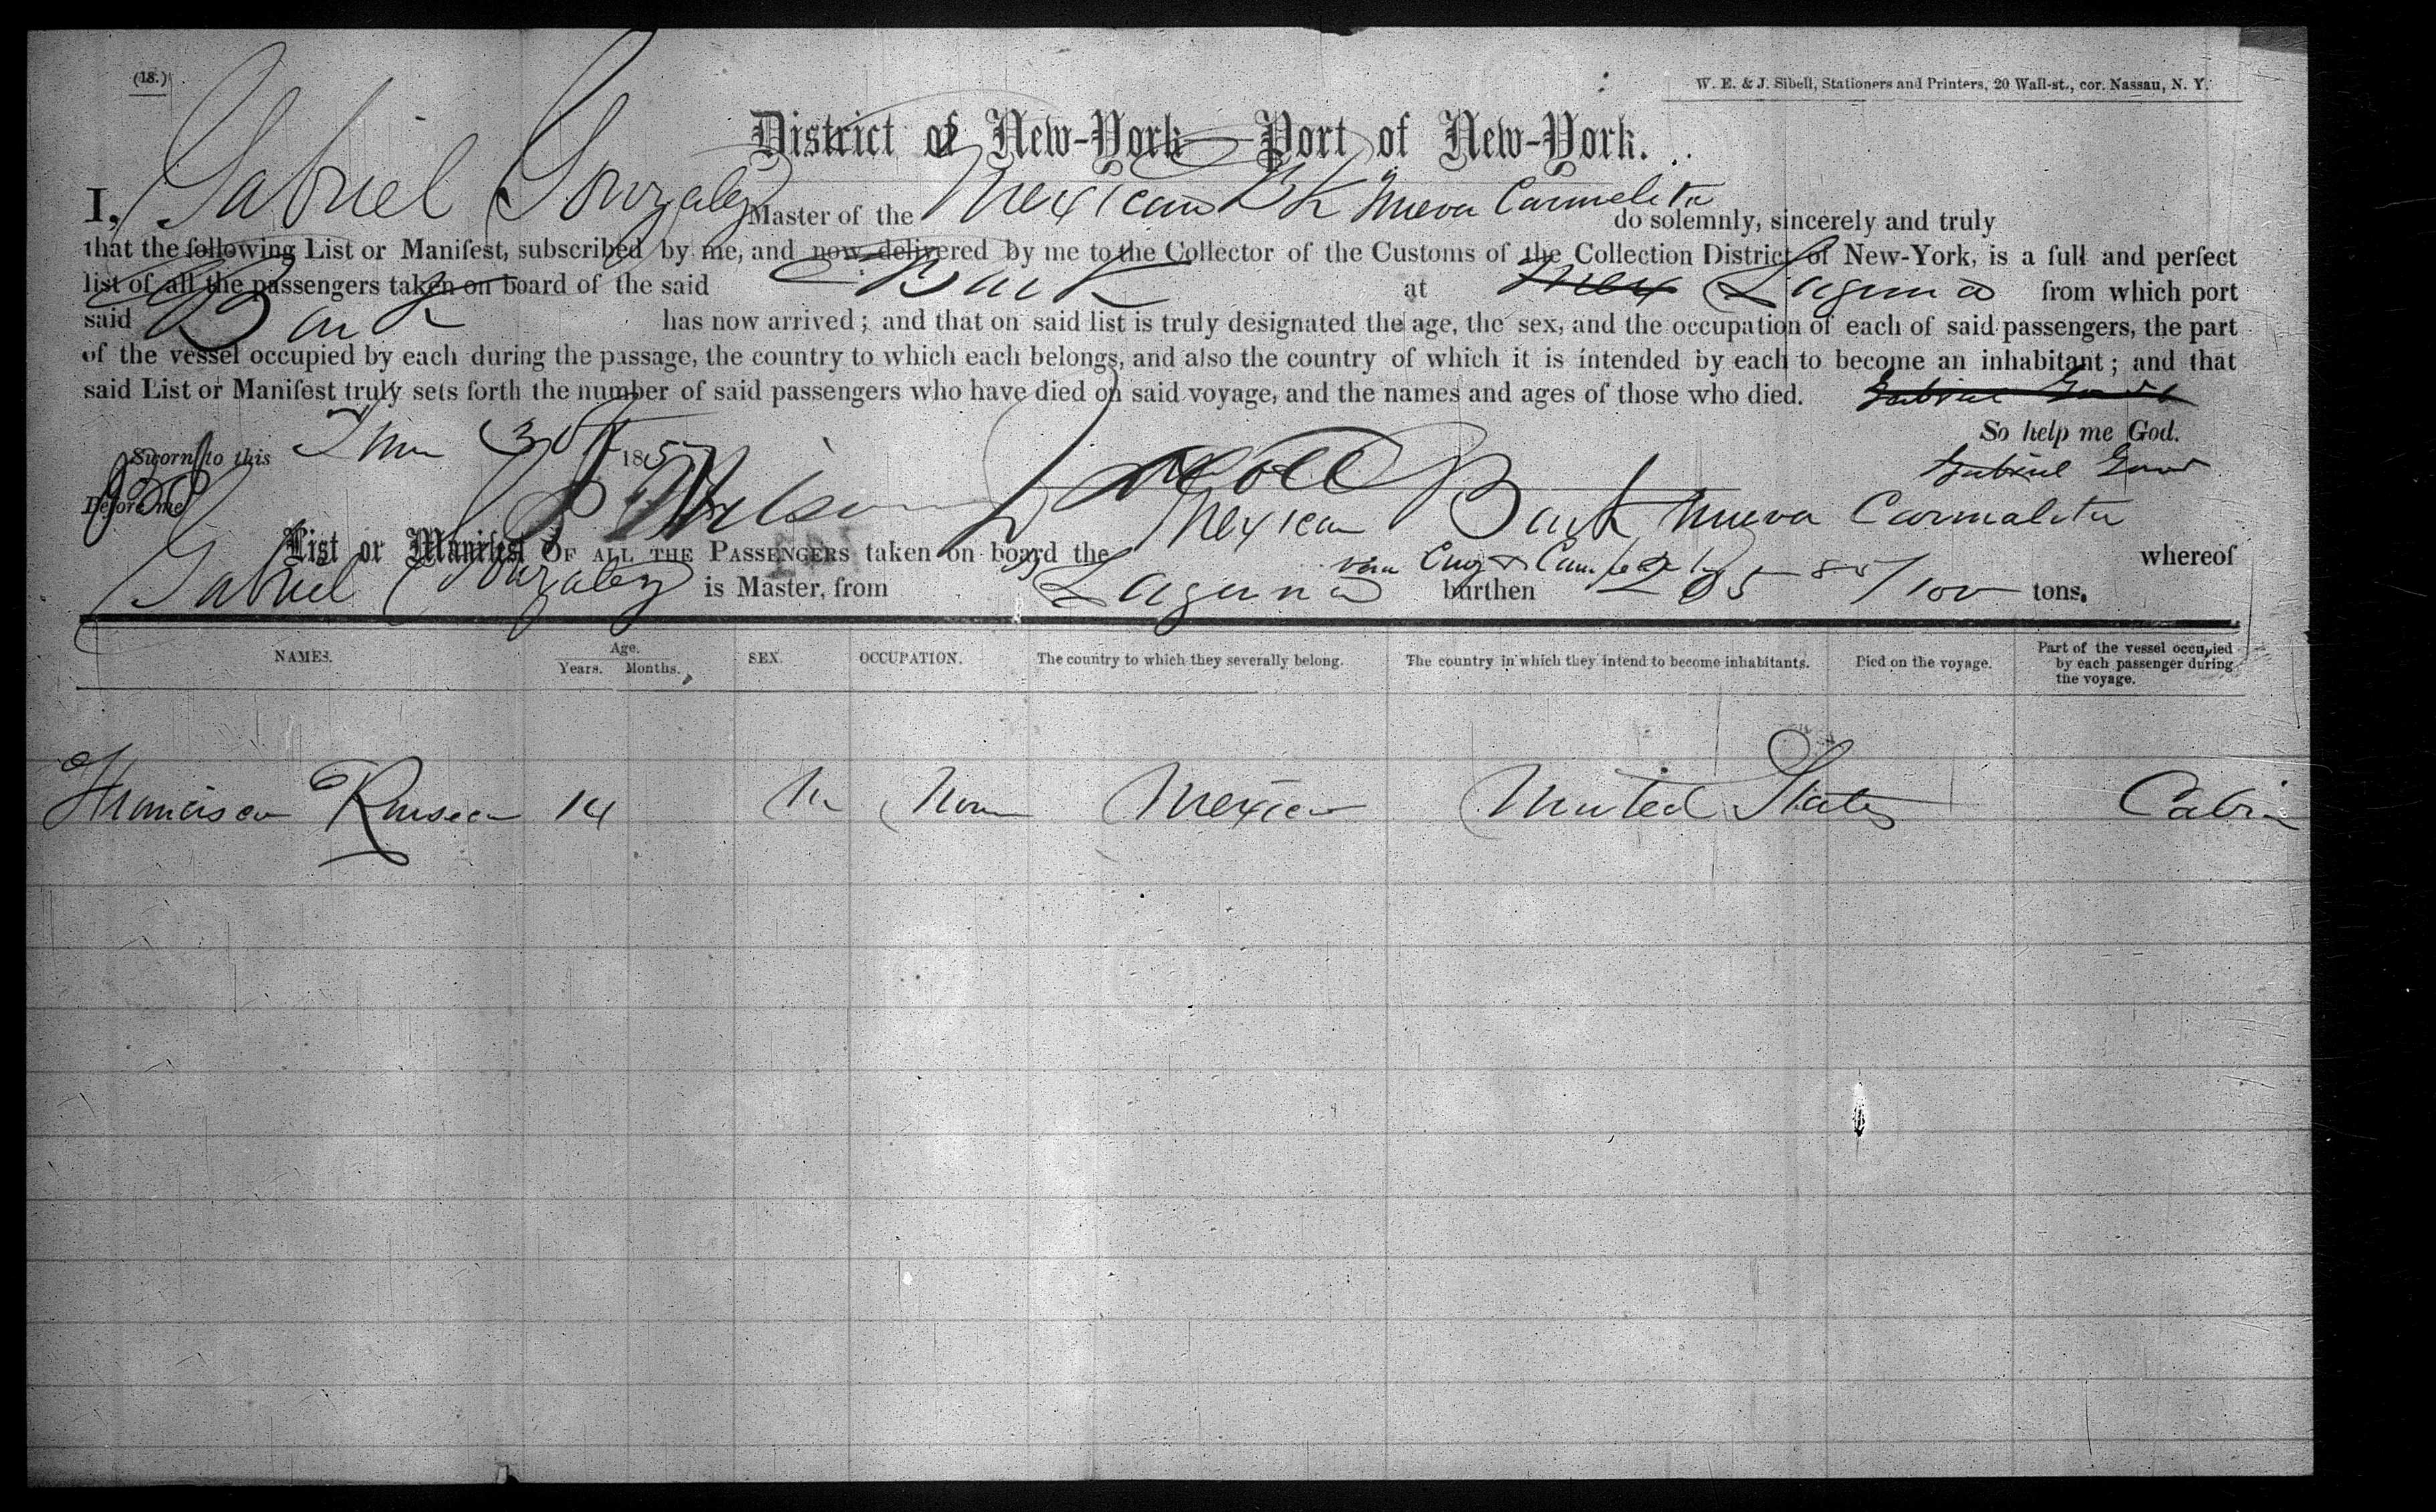 (18.)
W. E. & J. Sibell, Stationers and Printers, 20 Wall-st., cor. Nassau, N. Y.
District of New-York—Port of New-York.
I, Gabriel Gonzalez Master of the Mexican Bk Nueva Carmelita do solemnly, sincerely and truly
that the following List or Manifest, subscribed by me, and now delivered by me to the Collector of the Customs of the Collection District of New-York, is a full and perfect
list of all the passengers taken on board of the said Bark at Mex Laguna from which port
said Bark has now arrived; and that on said list is truly designated the age, the sex, and the occupation of each of said passengers, the part
of the vessel occupied by each during the passage, the country to which each belongs, and also the country of which it is intended by each to become an inhabitant; and that
said List or Manifest truly sets forth the number of said passengers who have died on said voyage, and the names and ages of those who died.
So help me God.
Sworn to this June 30th 185
Before me
List or Manifest OF ALL THE PASSENGERS taken on board the Mexican Bark Nueva Carmalita whereof
Gabriel Gonzalez is Master, from Laguna burthen 205 85/100 tons.
NAMES. Age. Years. Months. SEX. OCCUPATION. The country to which they severally belong. The country in which they intend to become inhabitants. Died on the voyage. Part of the vessel occupied by each passenger during the voyage.
Francisco 14 M None Mexico United States Cabin